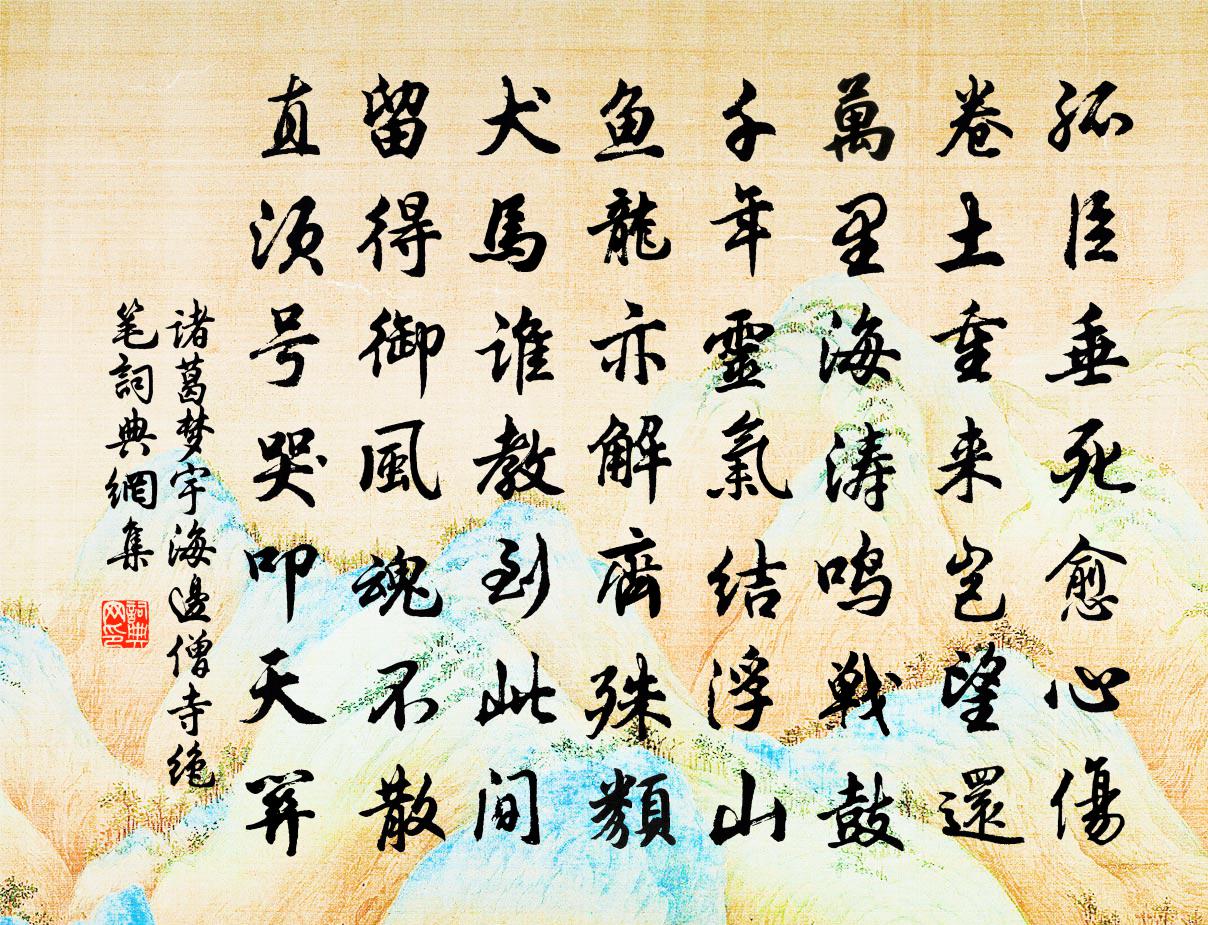 孤臣垂死愈心傷
卷土重来岂望還
萬里海涛鸣戦鼓
千年靈氣結浮山
鱼龍亦解齊殊類
犬馬谁教到此间
留得御風魂不散
直须号哭叩天関
诸葛梦宇海邊僧寺绝
笔詞典網集
詞典网印